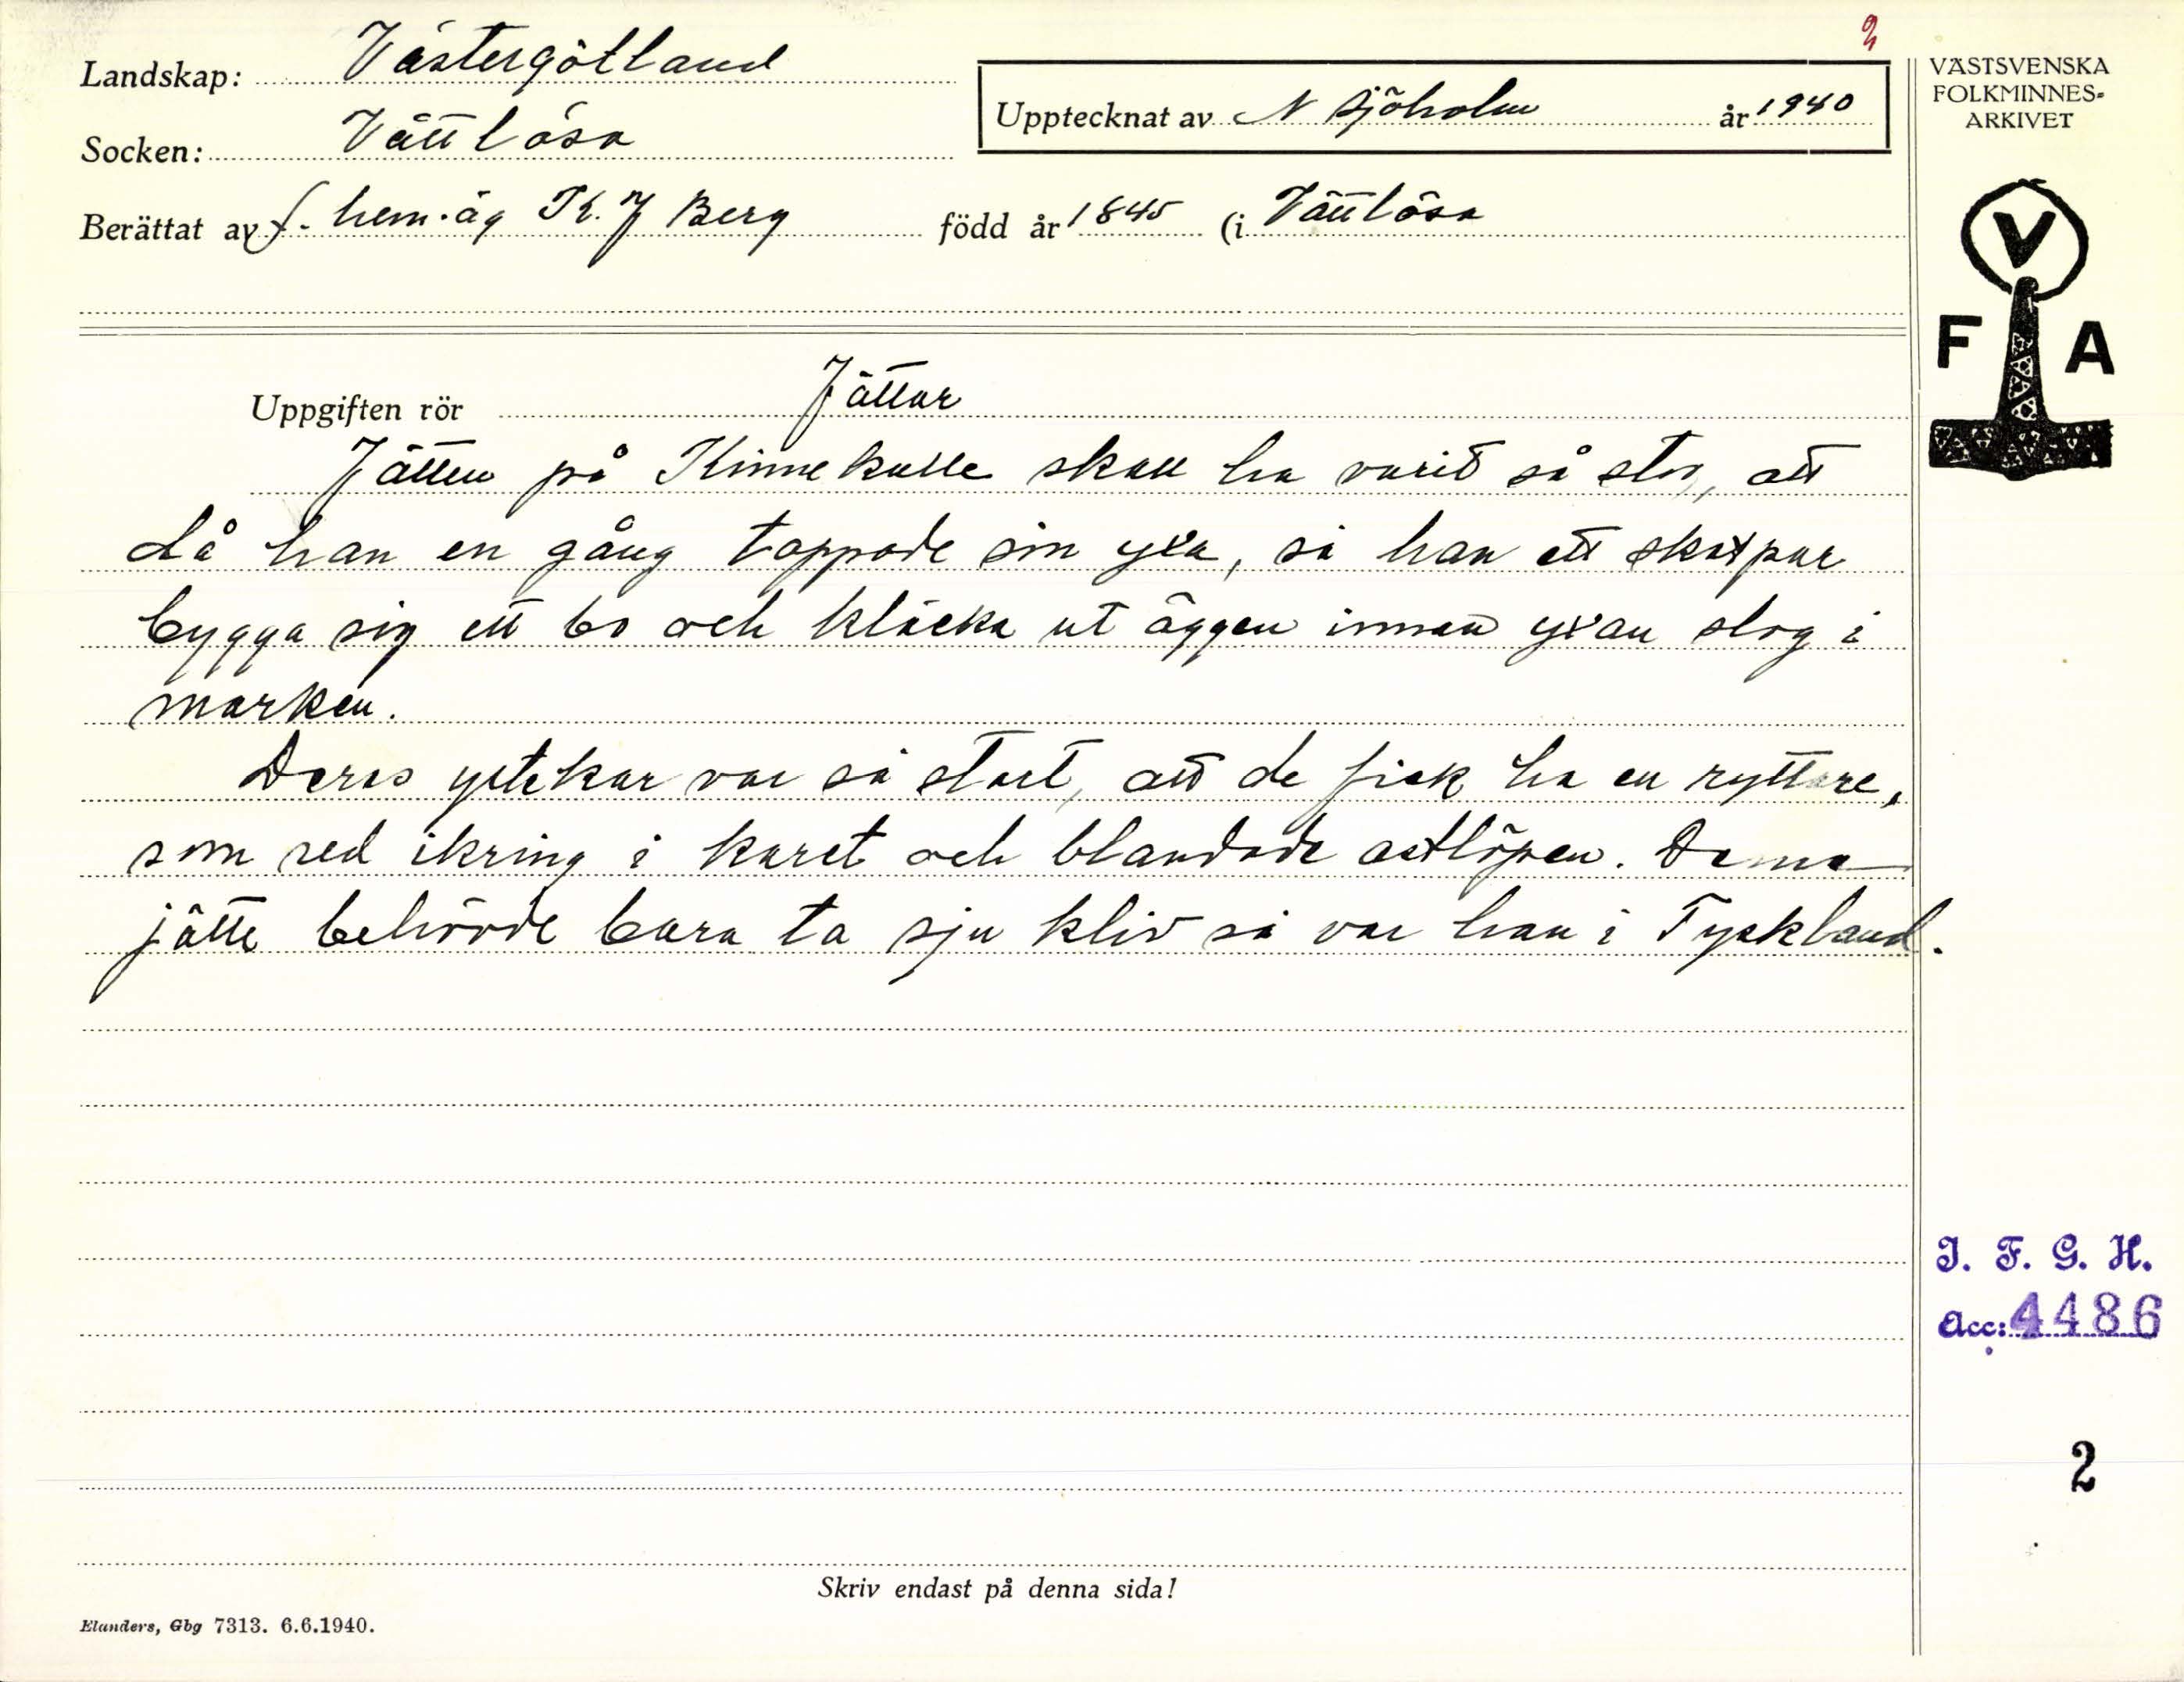 2
Landskap: Västergötland
Socken: Vättlösa
Upptecknat av N Sjöholm år 1940
Berättat av f. hem.äg K. J Berg född år 1845 (i Vättlösa
VÄSTSVENSKA
FOLKMINNES-
ARKIVET
V
F A
Uppgiften rör Jättar
Jätten på Kinnekulle skall ha varit så stor, att
då han en gång tappade sin yxa, så han ett skatpar
bygga sig ett bo och kläcka ut äggen innan yxan slog i
marken.
Deras ystekar var så stort, att de fick ha en ryttare,
som red ikring i karet och blandade ostlöpen. Denna
jätte behövde bara ta sju kliv så var han i Tyskland.
I. F. G. H.
Acc: 4486
2
Skriv endast på denna sida!
Elanders, Gbg 7313. 6.6.1940.